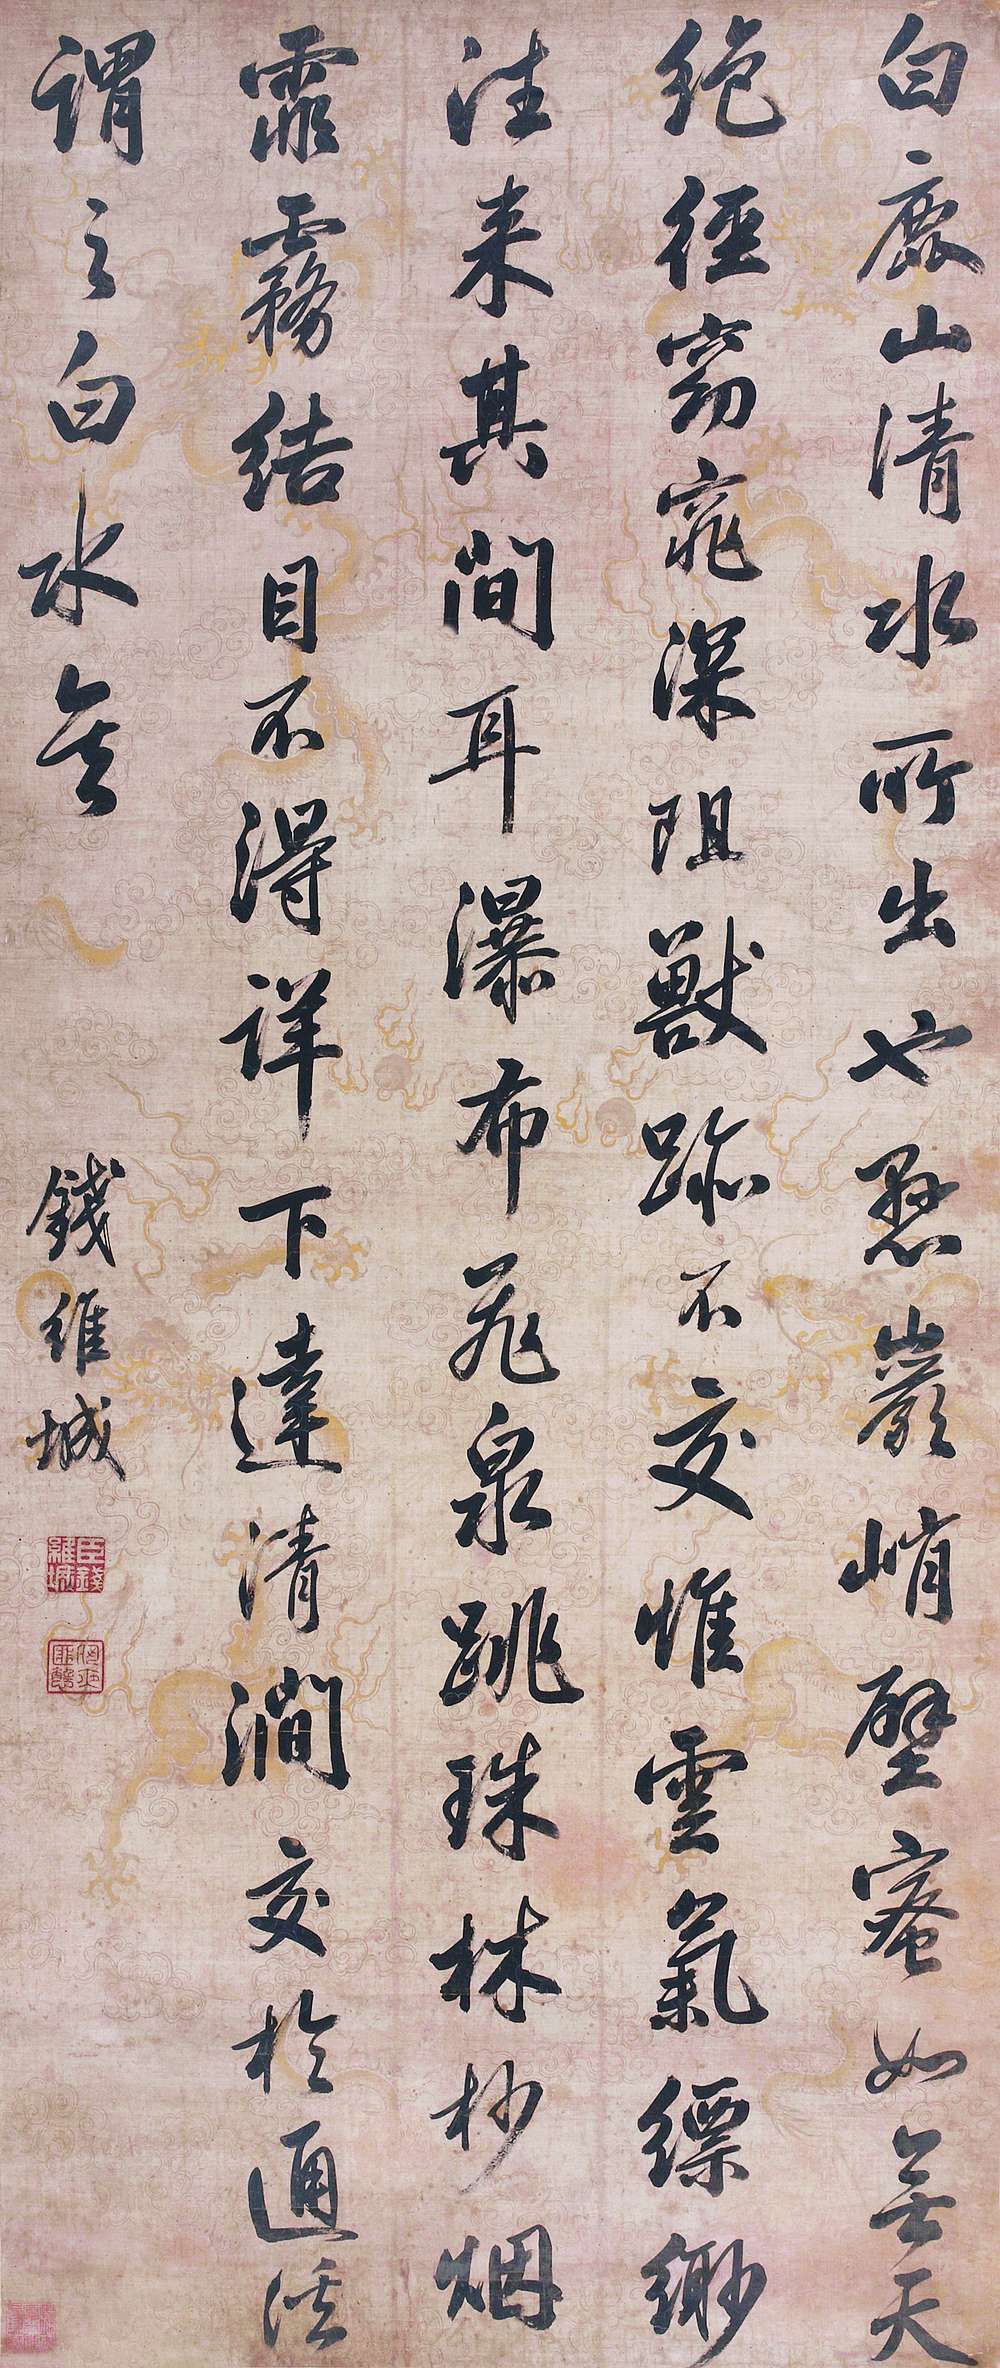 白鹿山清水所出也懸巖峭壁蜜如無天
絕徑窈窕深阻獸跡不交惟雲氣縹緲
往来其間耳瀑布飛泉跳珠林杪烟
霏霧結目不得詳下達清澗交於通溪
謂之白水矣
錢維城
臣錢維城